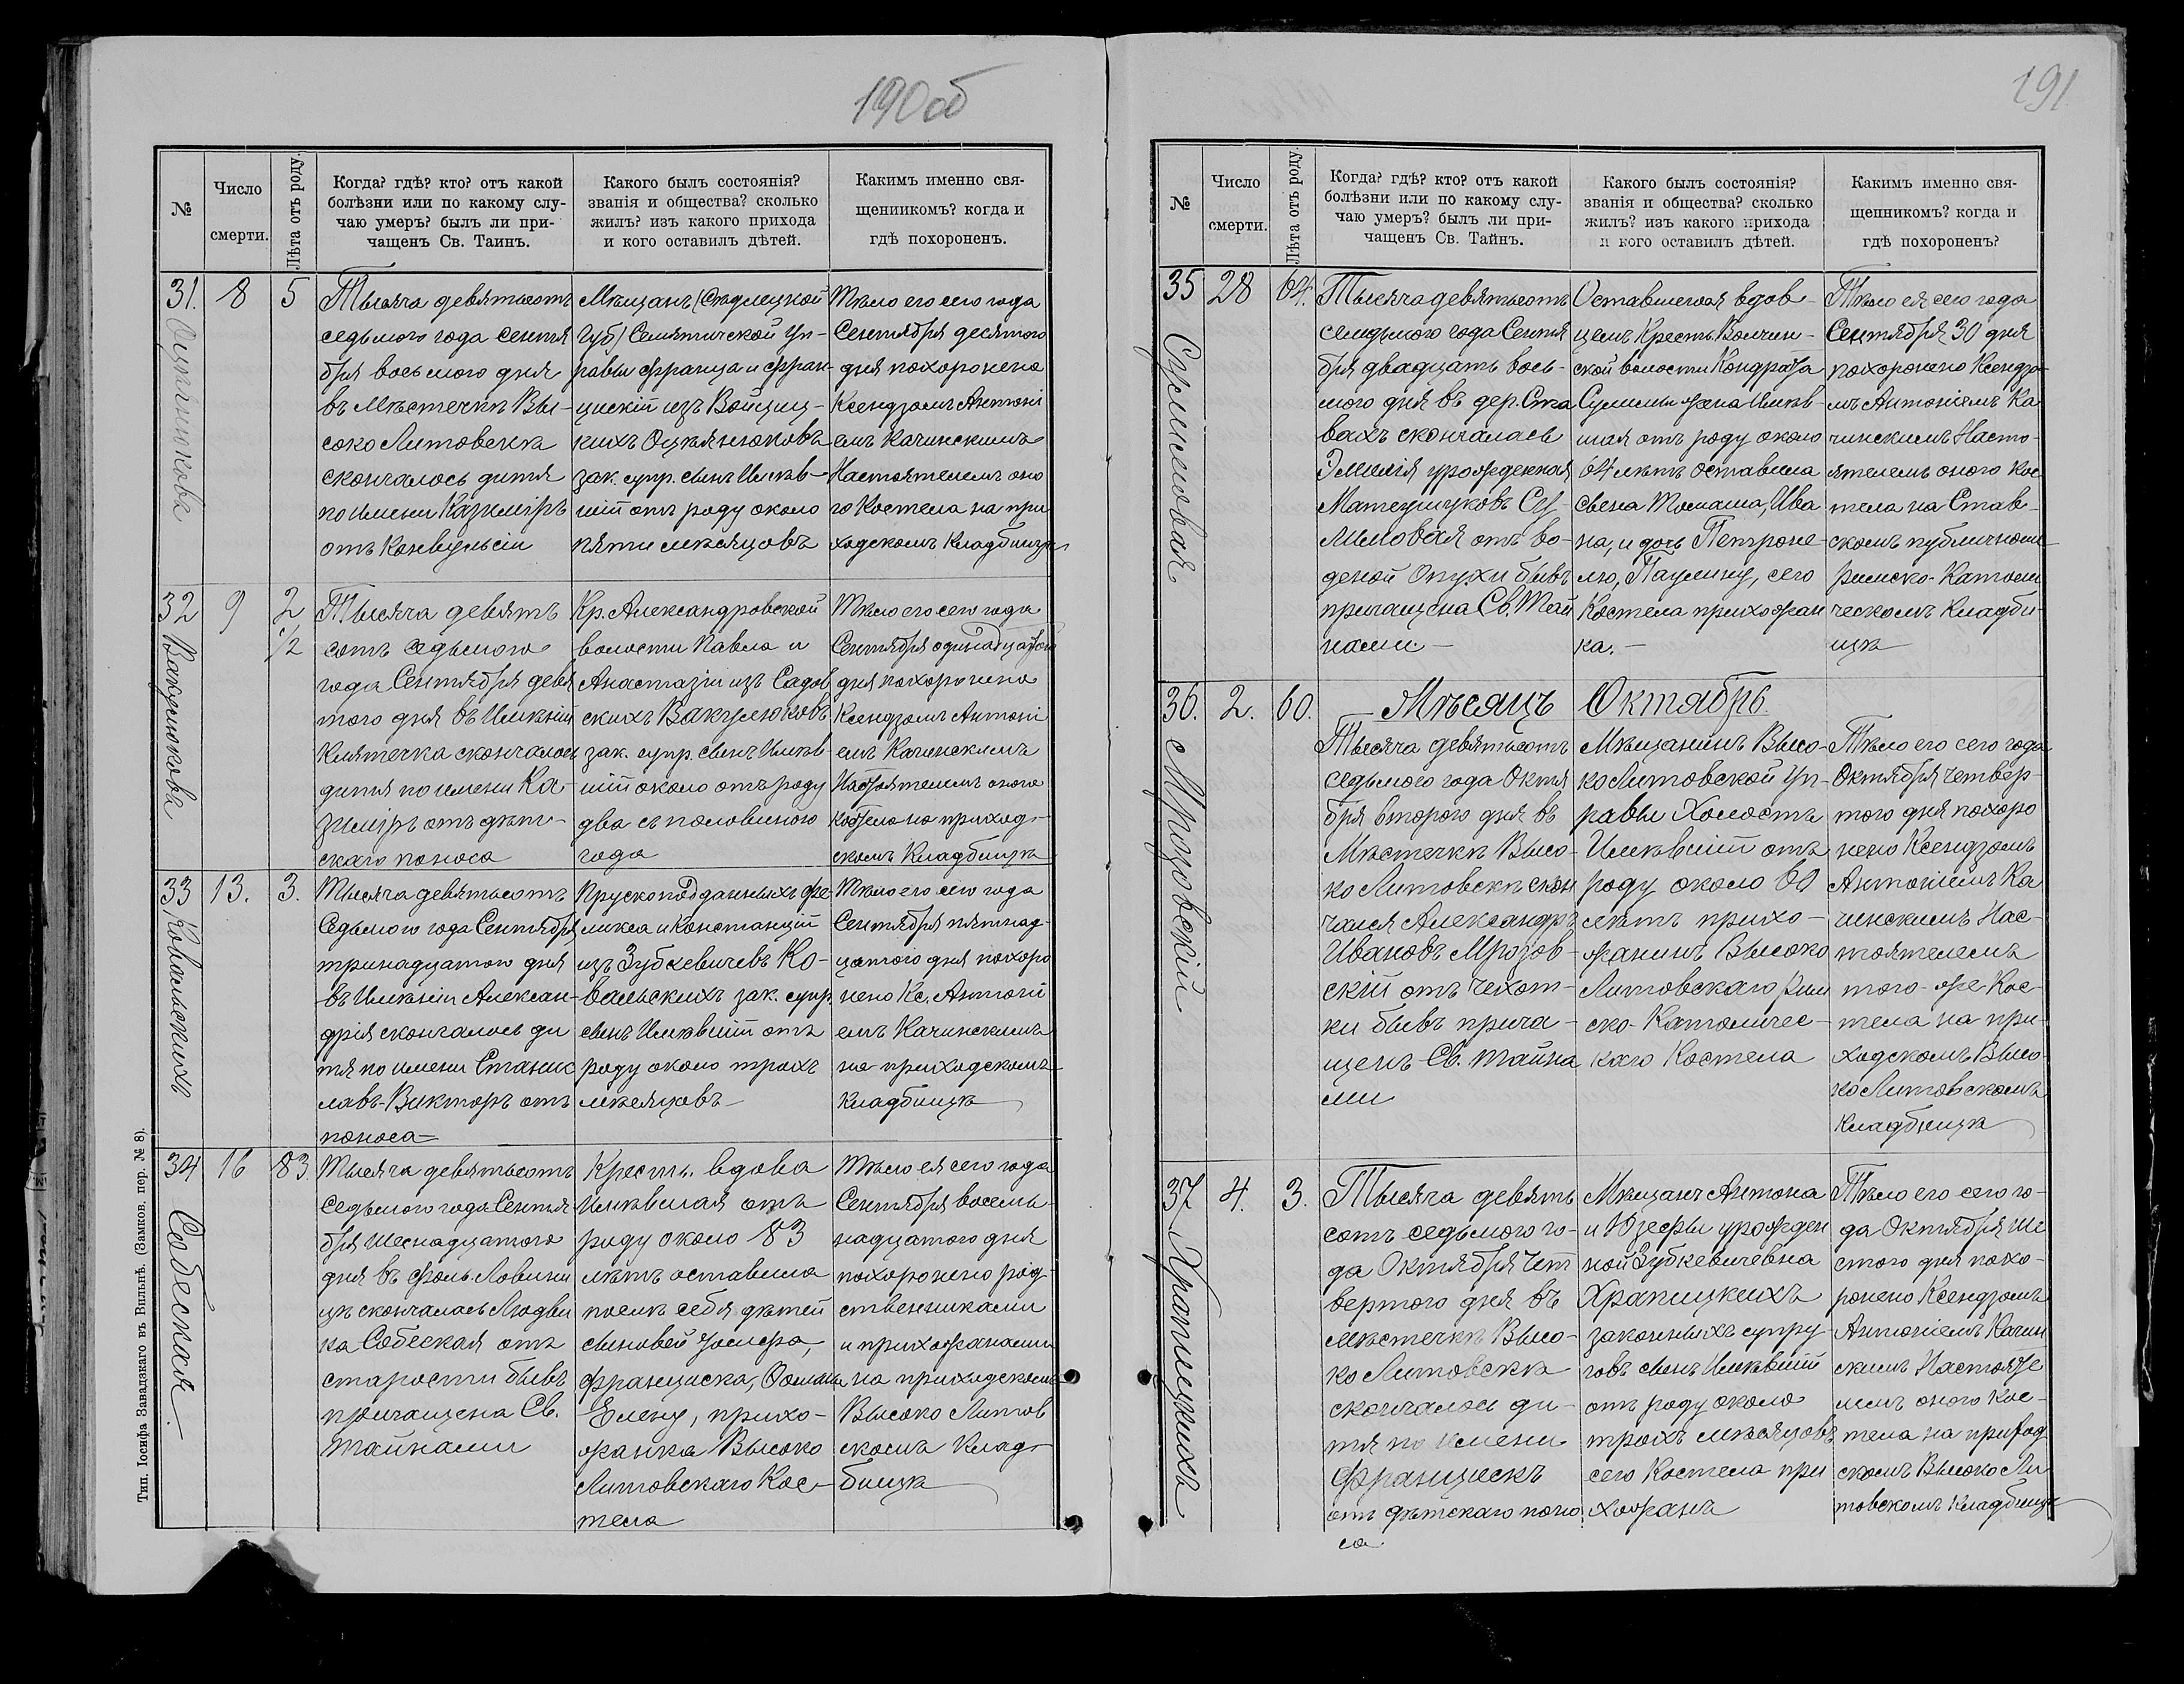 190 об
№
Число
смерти.
Лѣта отъ роду.
Когда? гдѣ? кто? отъ какой
болѣзни или по какому слу-
чаю умеръ? былъ ли при-
чащенъ Св. Таинъ.
Какого былъ состоянія?
званія и общества? сколько
жилъ? изъ какого прихода
и кого оставилъ дѣтей.
Какимъ именно свя-
щенникомъ? когда и
гдѣ похороненъ.
31. 8 5
Тысяча девятьсотъ
седьмого года Сентя
бря восьмого дня
въ Мѣстечкѣ Вы-
соко Литовскѣ
скончалось дитя
по имени Казиміръ
отъ Конвульсіи
Мѣщанъ (Сѣдлецкой
Губ) Семятической Уп-
равы Франца и Фран-
циски изъ Войциц-
кихъ
зак. супр. сынъ Имѣв-
шій отъ роду около
пяти мѣсяцовъ
Тѣло его сего года
Сентября десятого
дня похоронено
Ксендзомъ Антоні
емъ Качинскимъ
Настоятелемъ оно
го Костела на при
ходскомъ Кладбищѣ
32 9 2 1/2
Вакулюкова
Тысяча девять
сотъ седьмого
года Сентября девя
того дня въ Имѣніи
скончалось
дитя по имени Ка-
зиміръ отъ дѣт-
скаго поноса
Кр. Александровской
волости Павла и
Анастазіи изъ Садов
скихъ Вакулюковъ
зак. супр. сынъ Имѣв-
шій около отъ роду
два съ половиною
года
Тѣло его сего года
Сентября одинадцатого
дня похоронено
Ксендзомъ Антоні
емъ Качинскимъ
Настоятелемъ оного
костела на приход-
скомъ Кладбищѣ
33 13. 3.
Ковальскихъ
Тысяча девятьсотъ
Седьмого года Сентября
тринадцатого дня
въ Имѣніи Алексан-
дрія скончалось ди
тя по имени Станис
лавъ-Викторъ отъ
поноса
Прускоподданныхъ Фе-
ликса и Констанціи
изъ Зубкевичевъ Ко-
вальскихъ зак. супр.
сынъ Имѣвшій отъ
роду около трохъ
мѣсяцовъ
Тѣло его сего года
Сентября пятнад-
цатого дня похоро
нено Кс. Антоні
емъ Качинскимъ
на приходскомъ
Кладбищѣ
34 16 83.
Собеская
Тысяча девятьсотъ
седьмого года Сентя
бря Шеснадцатого
дня въ фоль. Ловчи
цѣ скончалась Людви
ка Собеская отъ
старости бывъ
причащена Св.
Тайнами
Крест. вдова
Имѣвшая отъ
роду около 83
лѣтъ оставила
послѣ себя дѣтей
сыновей Іосифа,
Франциска, Фому
Елену, прихо-
жанка Высоко
Литовскаго Кос-
тела
Тѣло ея сего года
Сентября восемь-
надцатого дня
похоронено род-
ственниками
и прихожанами
на приходскомъ
Высоко Литов
скомъ Клад-
бищѣ
Тип. Іосифа Завадзкаго въ Вильнѣ. (Замков. пер. № 8).
191
№
Число
смерти.
Лѣта отъ роду.
Когда? гдѣ? кто? отъ какой
болѣзни или по какому слу-
чаю умеръ? былъ ли при-
чащенъ Св. Тайнъ.
Какого былъ состоянія?
званія и общества? сколько
жилъ? изъ какого прихода
и кого оставилъ дѣтей.
Какимъ именно свя-
щенникомъ? когда и
гдѣ похороненъ?
35 28 64.
Сулимовая
Тысяча девятьсотъ
семдьмого года Сентя
бря двадцать вось-
мого дня въ дер. Ста
вахъ скончалась
Эмилія урожденная
Матеушуковъ Су-
лимовая отъ во-
деной Опухи бывъ
причащена Св. Тай
нами.
Оставшегося вдов-
цемъ Крест. Волчин-
ской волости Кондрата
Сулимы жена Имѣв-
шая отъ роду около
64 лѣтъ оставила
сына Томаша, Ива
на, и дочь Петроне-
лю, Паулину, сего
Костела прихожан
ка.
Тѣло ея сего года
Сентября 30 дня
похоронено Ксендзо-
мъ Антоніемъ Ка
чинскимъ Насто-
ятелемъ оного Кос
тела на Став-
скомъ публичномъ
римско-Католи
ческомъ Кладби
щѣ
Мѣсяцъ Октябрь.
36. 2. 60.
Мрозовскій
Тысяча девятьсотъ
седьмого года Октя
бря второго дня въ
Мѣстечкѣ Высо-
ко Литовскѣ скон
чался Александръ
Ивановъ Мрозов-
скій отъ чехот-
ки бывъ прича-
щенъ Св. Тайна
ми
Мѣщанинъ Высо-
ко Литовской Уп-
равы Холостъ
Имѣвшій отъ
роду около 60
лѣтъ прихо-
жанинъ Высоко
Литовскаго Рим
ско-Католичес-
каго Костела
Тѣло его сего года
Октября Четвер-
того дня похоро
нено Ксендзомъ
Антоніемъ Ка
чинскимъ Нас-
тоятелемъ
того-же Кос-
тела на при-
ходскомъ Высо-
ко Литовскомъ
Кладбищѣ
37 4. 3.
Храпицкихъ
Тысяча девять
сотъ седьмого го-
да Октября Чет
вертого дня въ
мѣстечкѣ Высо-
ко Литовскѣ
скончалось ди-
тя по имени
Францискъ
отъ дѣтскаго поно
са.
Мѣщанъ Антона
и Юзефы урожден
ной Зубкевичевна
Храпицкихъ
законныхъ супру
говъ сынъ Имѣвшій
отъ роду около
трохъ мѣсяцовъ
сего Костела при
хожанъ
Тѣло его сего го-
да Октября Ше
стого дня похо-
ронено Ксендзомъ
Антоніемъ Качин
скимъ Настояте
лемъ оного Кос-
тела на приход
скомъ Высоко Ли
товскомъ Кладбищѣ